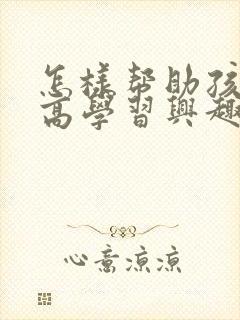 怎樣帮助孩
高學習興趣
心意凉凉